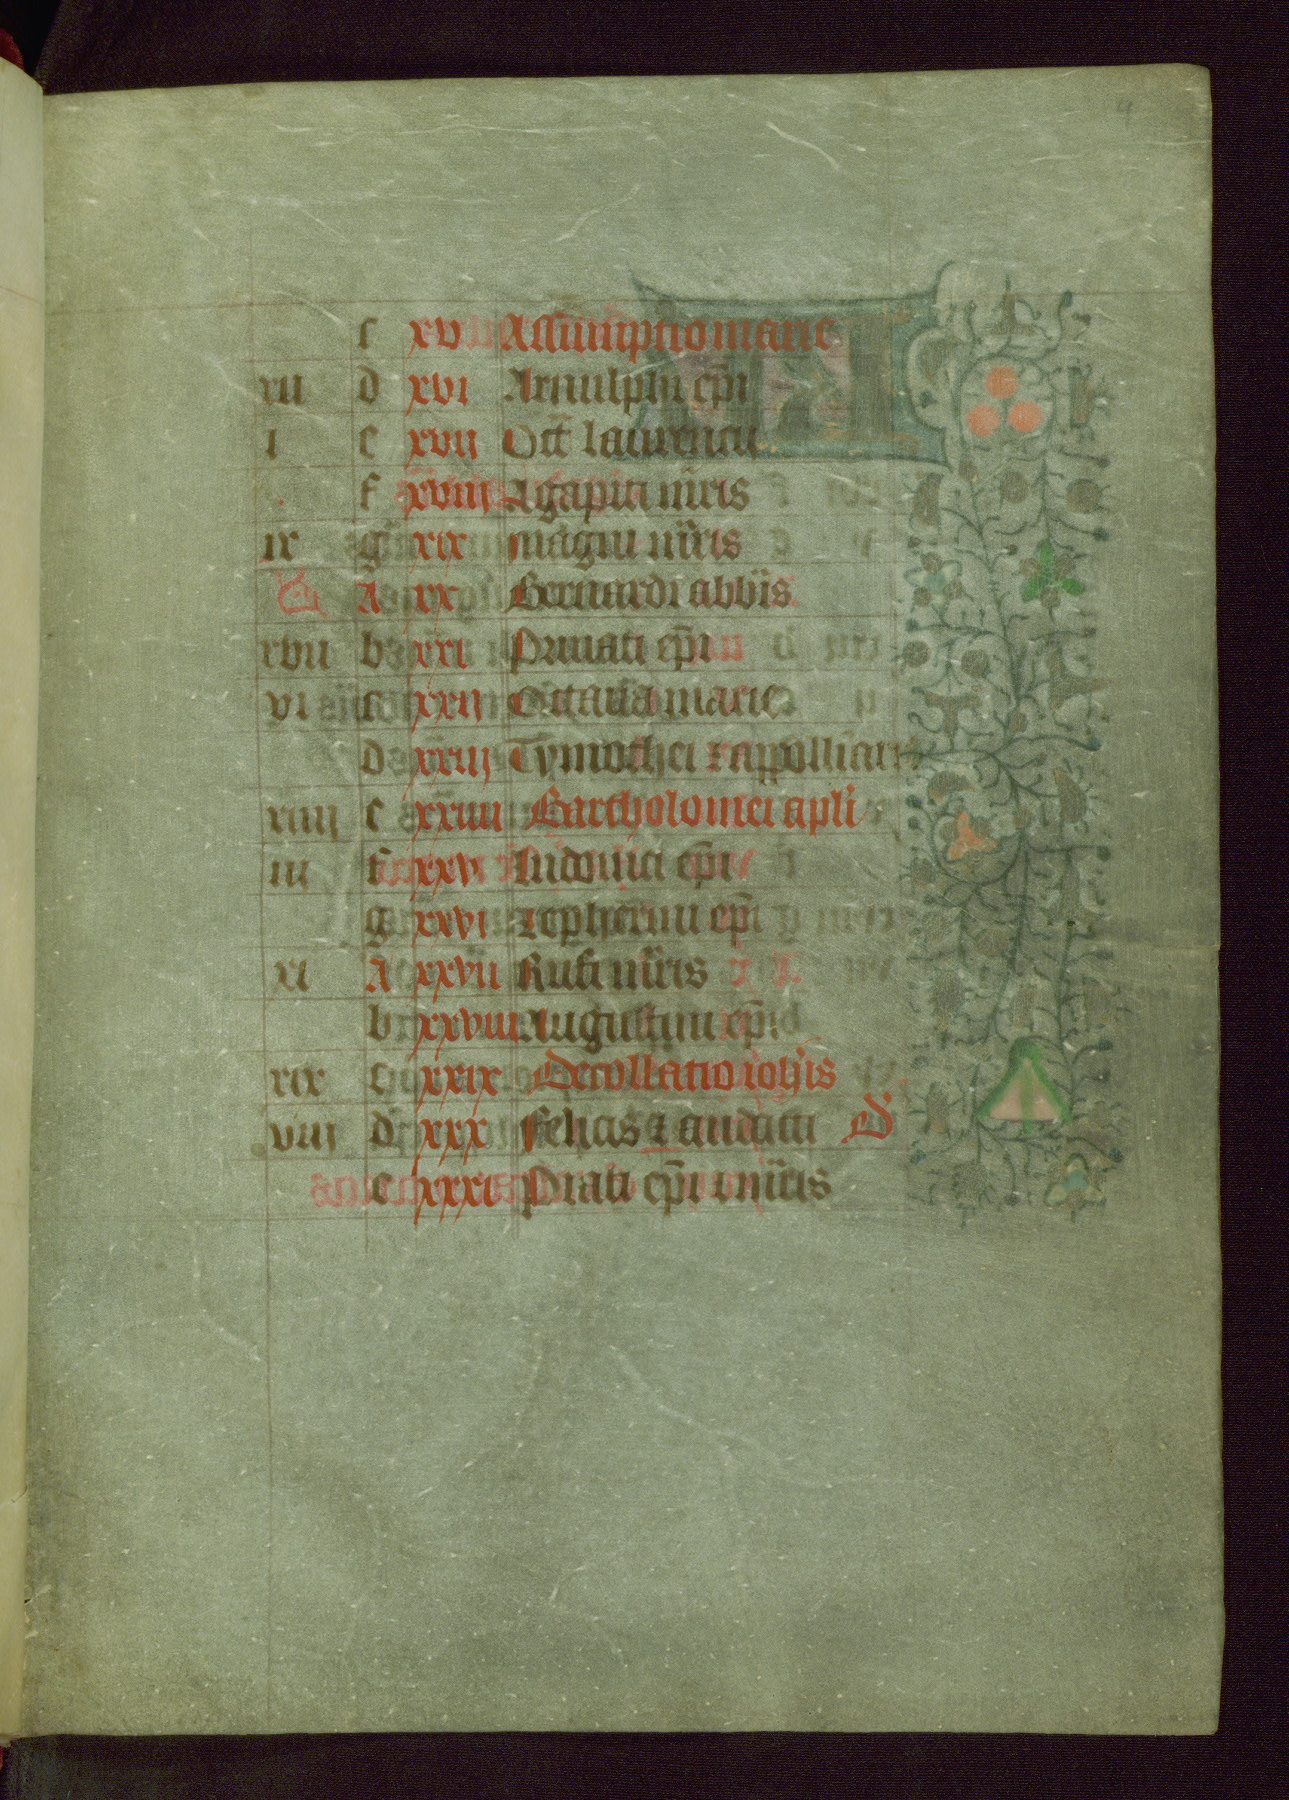 4
c xv Assumptio marie
xii d xvi Arnulphi ep̄i
i e xvii Oct̄ laurencii
f xviii Agapiti m̄ris
ix g xix Magni m̄ris
A xx Bernardi abb̄is
xvii b xxi Priuati ep̄i
vi c xxii Octaua marie
d xxiii Tymothei ⁊ appolliaris
xiiii e xxiiii Bartholomei apl̄i
iii f xxv Ludouici ep̄i
g xxvi ep̄i
xi A xxvii Rufi m̄ris
b xxviii Augustini ep̄i
xix c xxix Decollatio ioh̄is
viii d xxx Felicis ⁊ audacti
e xxxi ep̄i ⁊ m̄ris